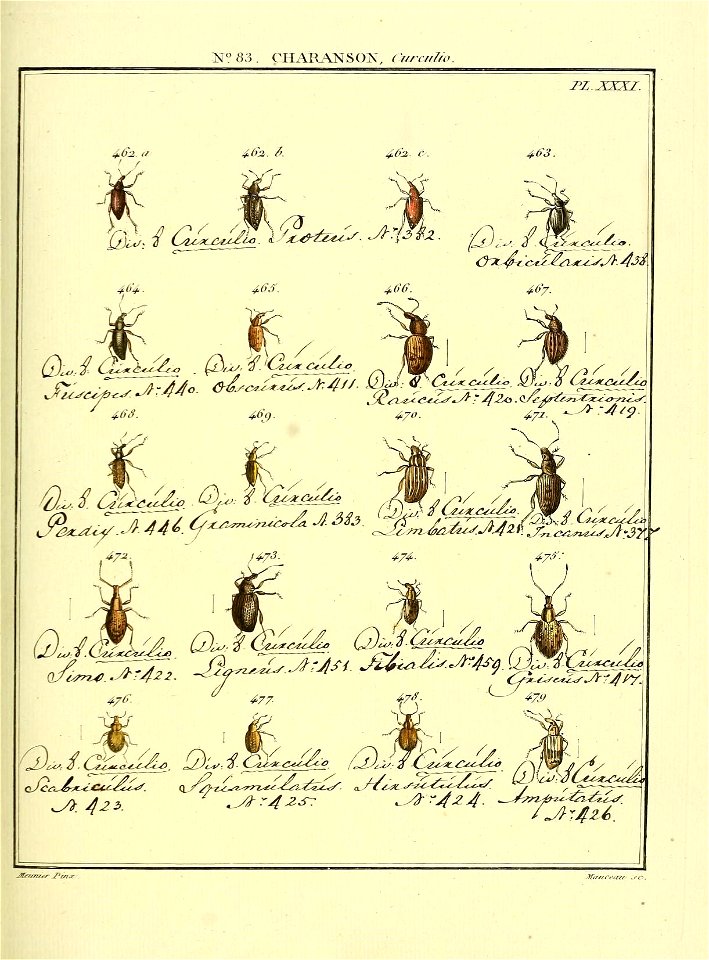 Nº 83. CHARANSON, Curculio.
PL. XXXI.
462. a
462. b.
462. c.
463.
Div: 8 Cúrcúlio. Proteús. Nº 382.
Div. 8 Cúrcúlio.
Orbicúlaris N. 438
464.
465.
466.
467.
Div. 8. Cúrcúlio
Fúscipes. Nº 440.
Div. 8. Cúrcúlio.
Obscúrús. N. 411.
Div: 8 Cúrcúlio.
Raúcús Nº 420.
Div. 8 Cúrcúlio
Septentrionis.
Nº 419.
468.
469.
470.
471.
Div. 8. Cúrcúlio
Perdix. N. 446.
Div. 8. Cúrcúlio
Graminicola N. 383.
Div. 8. Cúrcúlio.
Limbatús. N. 421.
Div. 8. Cúrcúlio
Incanús Nº 377
472.
473.
474.
475.
Div. 8. Cúrcúlio.
Simo. Nº 422.
Div. 8. Cúrcúlio
Ligneús. Nº 451.
Div. 8 Cúrcúlio
Tibialis. Nº 459.
Div. 8 Cúrcúlio
Griseús Nº 417.
476.
477.
478.
479
Div. 8. Cúrcúlio.
Scabricúlús.
N. 423.
Div. 8. Cúrcúlio
Squamúlatús.
Nº 425.
Div. 8. Cúrcúlio
Hirsútúlús.
Nº 424.
Div. 8 Cúrcúlio
Ampútatús.
Nº 426.
Meunier Pinx
Manceau sc.